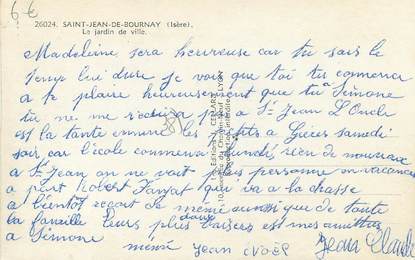 6€
26024. SAINT-JEAN-DE-BOURNAY (Isère).
Le jardin de ville.
Madeleine sera heureuse car tu sais le
temps lui dure je vois que toi tu commence
a te plaire heureusement que tu a Simone
tu me a St Jean L'Oncle
est la tante les petits a samedi
soir car l'école commence lundi, rien de nouveaux
a St Jean on ne voit plus personne en vacances
a part Robert qui va a la chasse
a bientôt reçoit de mémé aussi que de toute
la famille leurs plus doux baisers est mes amitiés
a Simone
mémé Jean Noël Jean Claude
Editions CELLARD
LYON